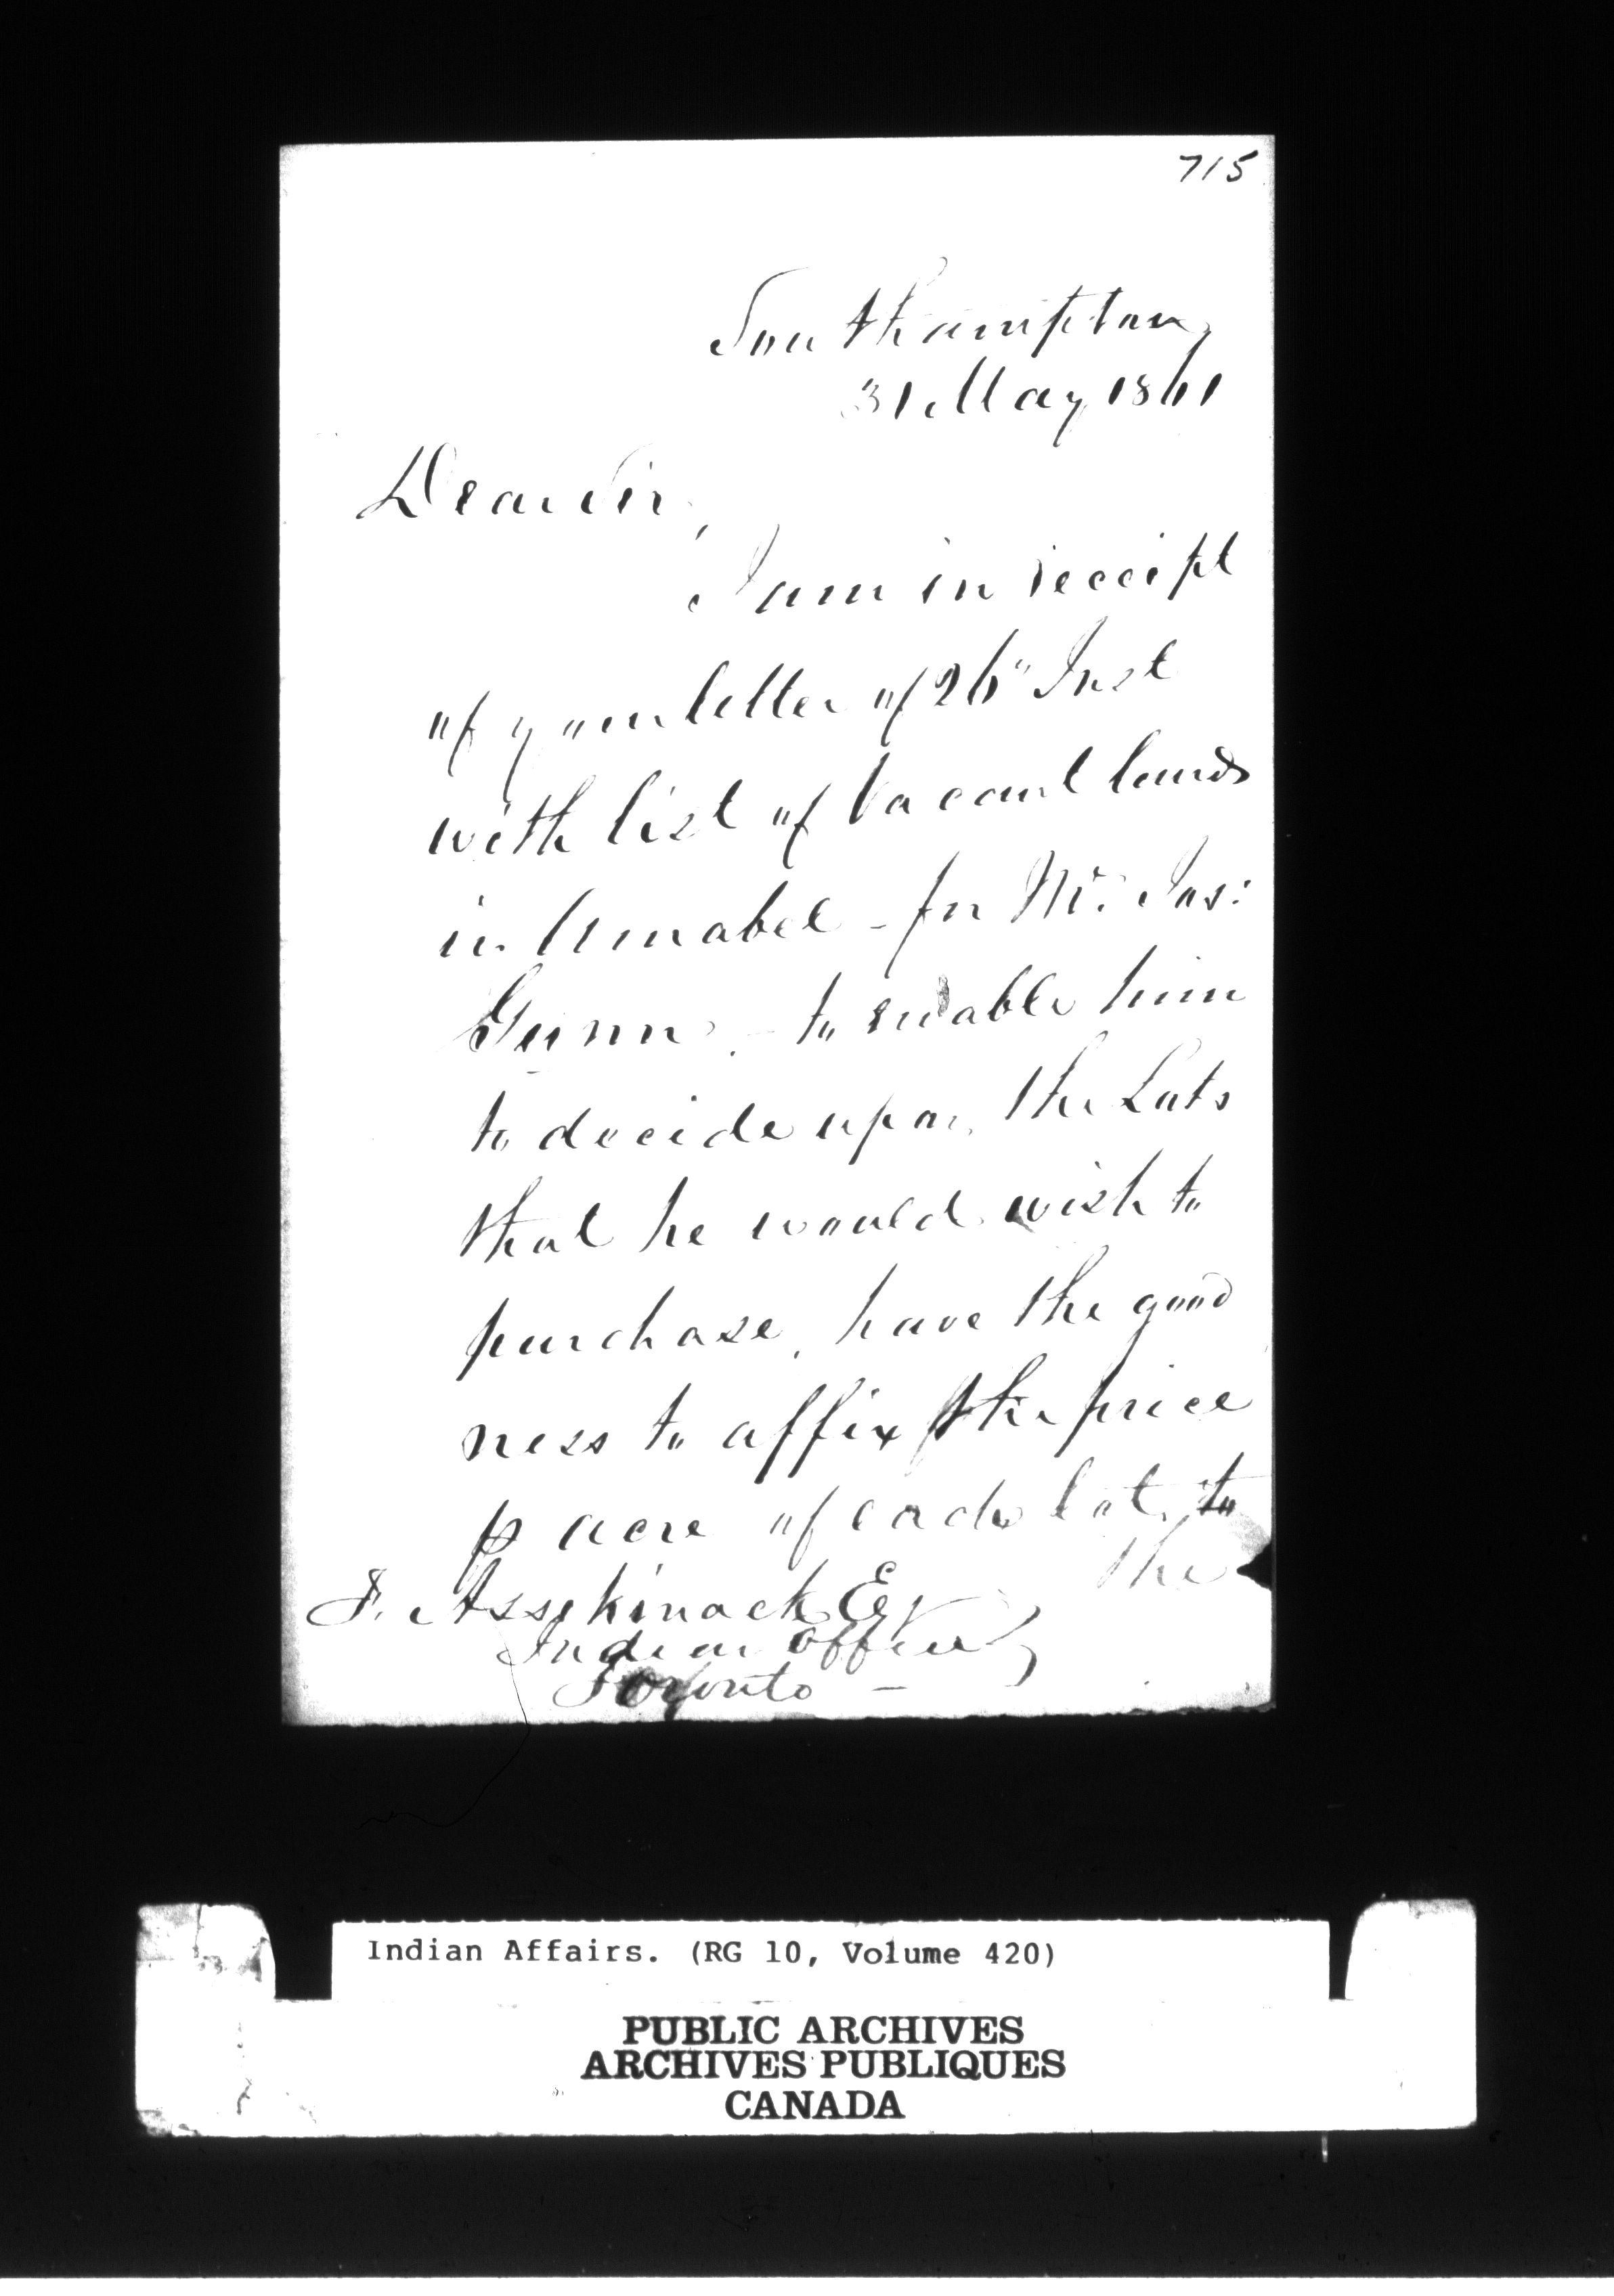 715
Southampton
31 May 1861
Dear Sir,
I am in receipt
of your letter of 26" Inst
with list of Vacant lands
in Amabel - for Mr. Jas:
Gunn. - to enable him
to decide upon the Lots
that he would wish to
purchase, have the good
ness to affix the price
p acre of each lot, to
the
F. Assikinack Esq
Indian Office
Toronto -
Indian Affairs. (RG 10, Volume 420)
PUBLIC ARCHIVES
ARCHIVES PUBLIQUES
CANADA